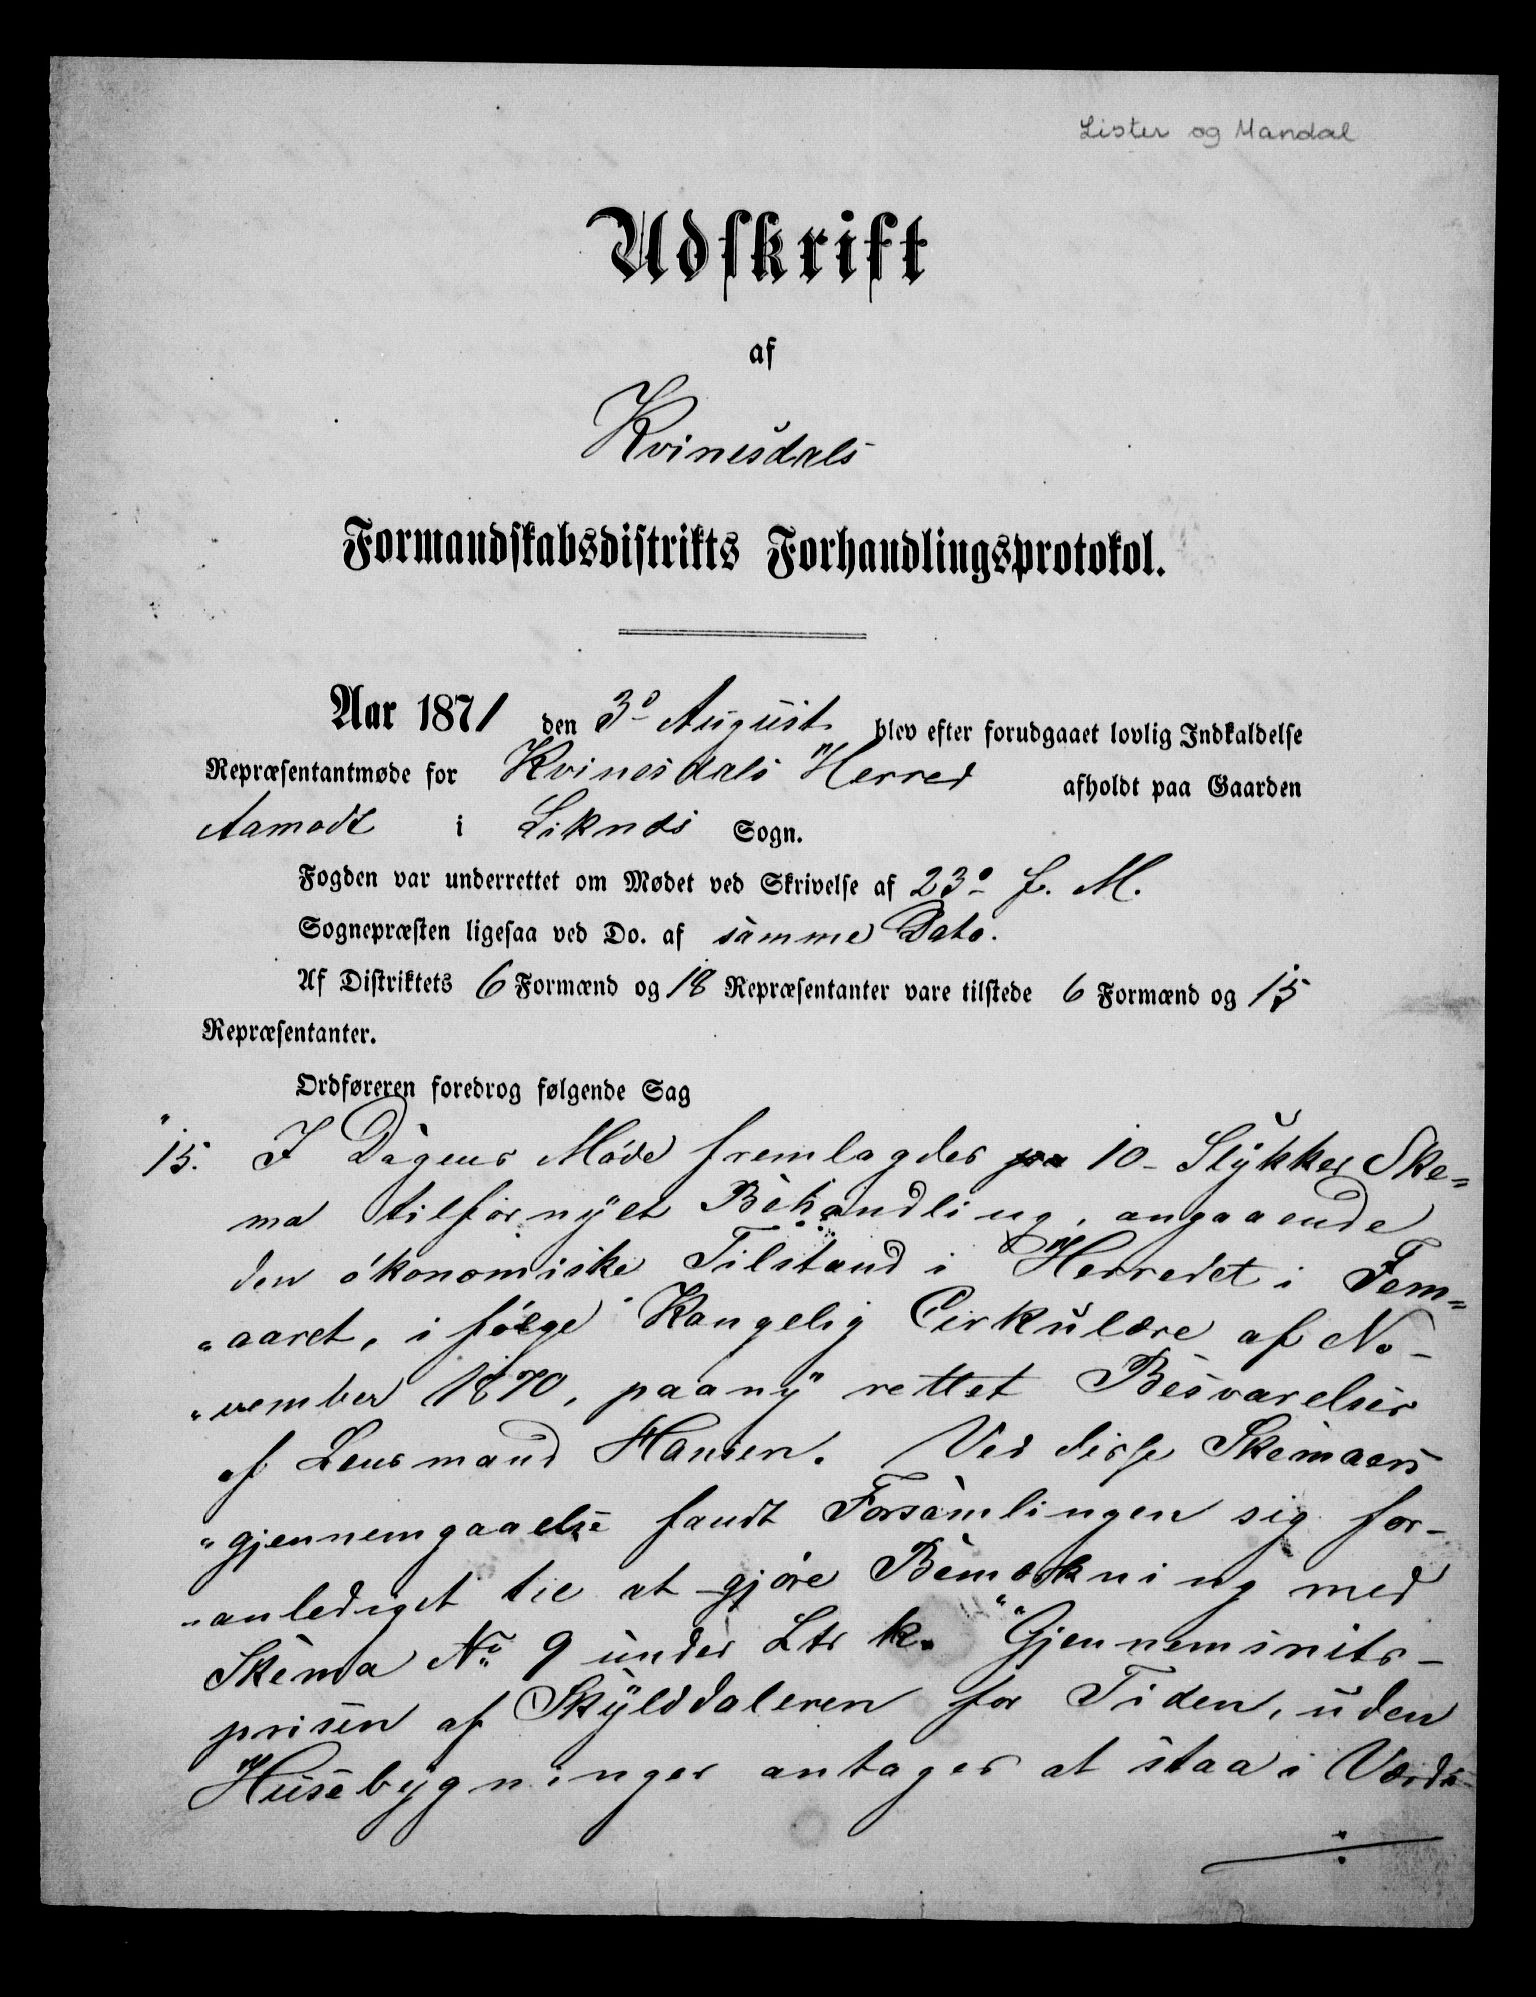 Lister og Mandal
Udskrift
af
Kvinesdals
Formandskabsdistrikts Forhandlingsprotokol.
Aar 1871 den 3d August blev efter forudgaaet lovlig Indkaldelse
Repræsentantmøde for Kvinesdals Herred afholdt paa Gaarden
Aamodt i Liknes Sogn.
Fogden var underrettet om Mødet ved Skrivelse af 23d f. M.
Sognepræsten ligesaa ved Do. af samme Dato.
Af Distriktets 6 Formænd og 18 Repræsentanter vare tilstede 6 Formænd og 15
Repræsentanter.
Ordføreren foredrog følgende Sag
15. I Dagens Møde fremlagdes 10 Stykker Ske=
ma tilfornyet Behandling, angaaende
den økonomiske Tilstand i Herredet i Fem=
"aaret, i følge Kongelig Cirkulære af No-
"vember 1870, paany rettet Besvarelser
af Lensmand Hansen. Ved disse Skemaers
"gjennemgaaelse fandt Forsamlingen sig for-
"anlediget til at gjøre Bemærkning med
Skema No 9 under Ltr k. "Gjennemsnits-
prisen af Skylddaleren for Tiden, uden
Husebygninger antages at staa i Værdi